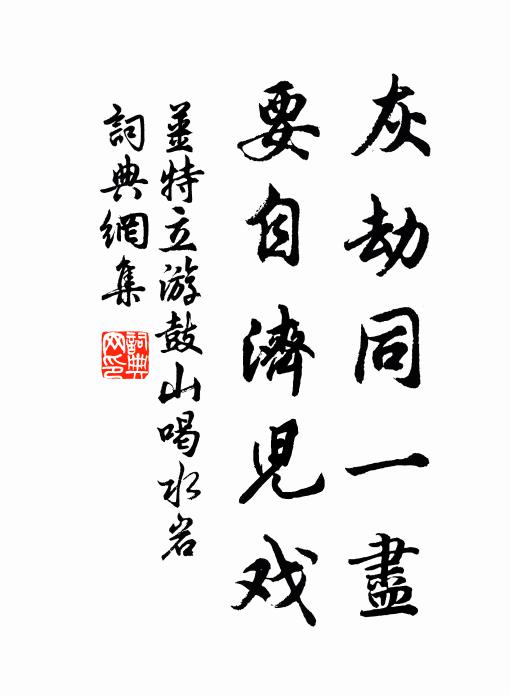 灰劫同一盡
要自濟兒戏
姜特立游鼓山喝水岩
詞典網集
詞典网印